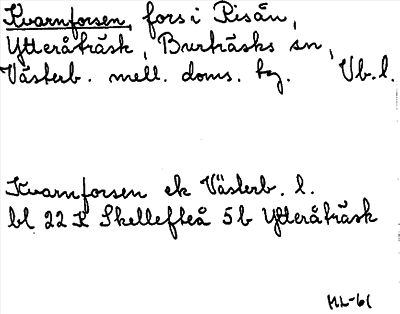 Kvarnforsen, fors i Risån,
Ytteråträsk, Burträsks sn,
Västerb. mell. doms. tg. Vb.l.
Kvarnforsen ek Västerb. l.
bl 22 K Skellefteå 5b Ytteråträsk
HL-61